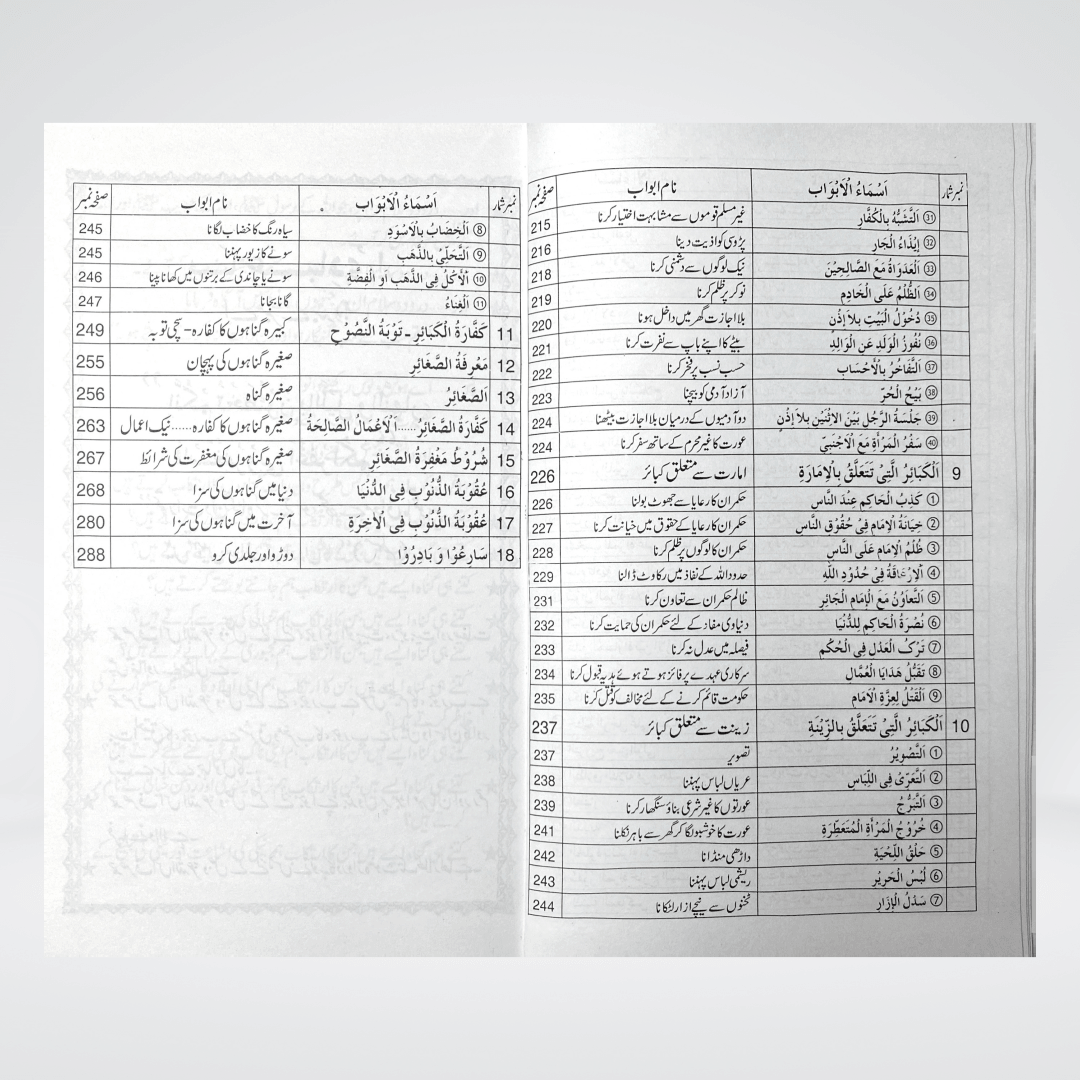 نمبر شمار اَسْمَاءُ الْاَبْوَاب نام ابواب صفحہ نمبر
㉛ اَلتَّشَبُّهُ بِالْكُفَّارِ غیر مسلم قوموں سے مشابہت اختیار کرنا 215
㉜ اِيْذَاءُ الْجَارِ پڑوسی کو اذیت دینا 216
㉝ اَلْعَدَوَاةُ مَعَ الصَّالِحِيْنَ نیک لوگوں سے دشمنی کرنا 218
㉞ اَلظُّلْمُ عَلَى الْخَادِمِ نوکر پر ظلم کرنا 219
㉟ دُخُوْلُ الْبَيْتِ بِلاَ اِذْنٍ بلا اجازت گھر میں داخل ہونا 220
㊱ نُفُوْرُ الْوَلَدِ عَنِ الْوَالِدِ بیٹے کا اپنے باپ سے نفرت کرنا 221
㊲ اَلتَّفَاخُرُ بِالْأَحْسَابِ حسب نسب پر فخر کرنا 222
㊳ بَيْحُ الْحُرِّ آزاد آدمی کو بیچنا 223
㊴ جَلْسَةُ الرَّجُلِ بَيْنَ الاِثْنَيْنِ بِلاَ اِذْنٍ دو آدمیوں کے درمیان بلا اجازت بیٹھنا 224
㊵ سَفْرُ الْمَرْأَةِ مَعَ الْأَجْنَبِيِّ عورت کا غیر محرم کے ساتھ سفر کرنا 224
9 اَلْكَبَائِرُ الَّتِيْ تَتَعَلَّقُ بِالْاِمَارَةِ امارت سے متعلق کبائر 226
① كَذِبُ الْحَاكِمِ عِنْدَ النَّاسِ حکمران کا رعایا سے جھوٹ بولنا 226
② خِيَانَةُ الْاِمَامِ فِيْ حُقُوْقِ النَّاسِ حکمران کا رعایا کے حقوق میں خیانت کرنا 227
③ ظُلْمُ الْاِمَامِ عَلَى النَّاسِ حکمران کا لوگوں پر ظلم کرنا 228
④ فِيْ حُدُوْدِ اللّٰهِ حدود اللہ کے نفاذ میں رکاوٹ ڈالنا 229
⑤ اَلتَّعَاوُنُ مَعَ الْاِمَامِ الْجَائِرِ ظالم حکمران سے تعاون کرنا 231
⑥ نُصْرَةُ الْحَاكِمِ لِلدُّنْيَا دنیاوی مفاد کے لئے حکمران کی حمایت کرنا 232
⑦ تَرْكُ الْعَدْلِ فِي الْحُكْمِ فیصلہ میں عدل نہ کرنا 233
⑧ تَقَبُّلُ هَدَايَا الْعُمَّالِ سرکاری عہدے پر فائز ہوتے ہوئے ہدیہ قبول کرنا 234
⑨ اَلْقَتْلُ لِعِزَّةِ الْاِمَامِ حکومت قائم کرنے کے لئے مخالف کو قتل کرنا 235
10 اَلْكَبَائِرُ الَّتِيْ تَتَعَلَّقُ بِالزِّيْنَةِ زینت سے متعلق کبائر 237
① اَلتَّصْوِيْرُ تصویر 237
② اَلتَّعَرِّىْ فِى اللِّبَاسِ عریاں لباس پہننا 238
③ اَلتَّبَرُّجُ عورتوں کا غیر شرعی بناؤ سنگھار کرنا 239
④ خُرُوْجُ الْمَرْأَةِ الْمُتَعَطِّرَةِ عورت کا خوشبو لگا کر گھر سے باہر نکلنا 241
⑤ حَلْقُ اللِّحْيَةِ داڑھی منڈانا 242
⑥ لُبْسُ الْحَرِيْرِ ریشمی لباس پہننا 243
⑦ سَدْلُ الْاِزَارِ ٹخنوں سے نیچے ازار لٹکانا 244
نمبر شمار اَسْمَاءُ الْاَبْوَاب نام ابواب صفحہ نمبر
⑧ اَلْخِضَابُ بِالْاَسْوَدِ سیاہ رنگ کا خضاب لگانا 245
⑨ اَلتَّحَلِّيْ بِالذَّهَبِ سونے کا زیور پہننا 245
⑩ اَلْاَكْلُ فِي الذَّهَبِ اَوِ الْفِضَّةِ سونے یا چاندی کے برتنوں میں کھانا پینا 246
⑪ اَلْغِنَاءُ گانا بجانا 247
11 كَفَّارَةُ الْكَبَائِرِ - تَوْبَةُ النَّصُوْحِ کبیرہ گناہوں کا کفارہ - سچی توبہ 249
12 مَعْرِفَةُ الصَّغَائِرِ صغیرہ گناہوں کی پہچان 255
13 اَلصَّغَائِرُ صغیرہ گناہ 256
14 كَفَّارَةُ الصَّغَائِرُ......اَلْاَعْمَالُ الصَّالِحَةُ صغیرہ گناہوں کا کفارہ......نیک اعمال 263
15 شُرُوْطُ مَغْفِرَةُ الصَّغَائِرِ صغیرہ گناہوں کی مغفرت کی شرائط 267
16 عُقُوْبَةُ الذُّنُوْبِ فِى الدُّنْيَا دنیا میں گناہوں کی سزا 268
17 عُقُوْبَةُ الذُّنُوْبِ فِى الْاٰخِرَةِ آخرت میں گناہوں کی سزا 280
18 سَارِعُوْا وَ بَادِرُوْا دوڑو اور جلدی کرو 288